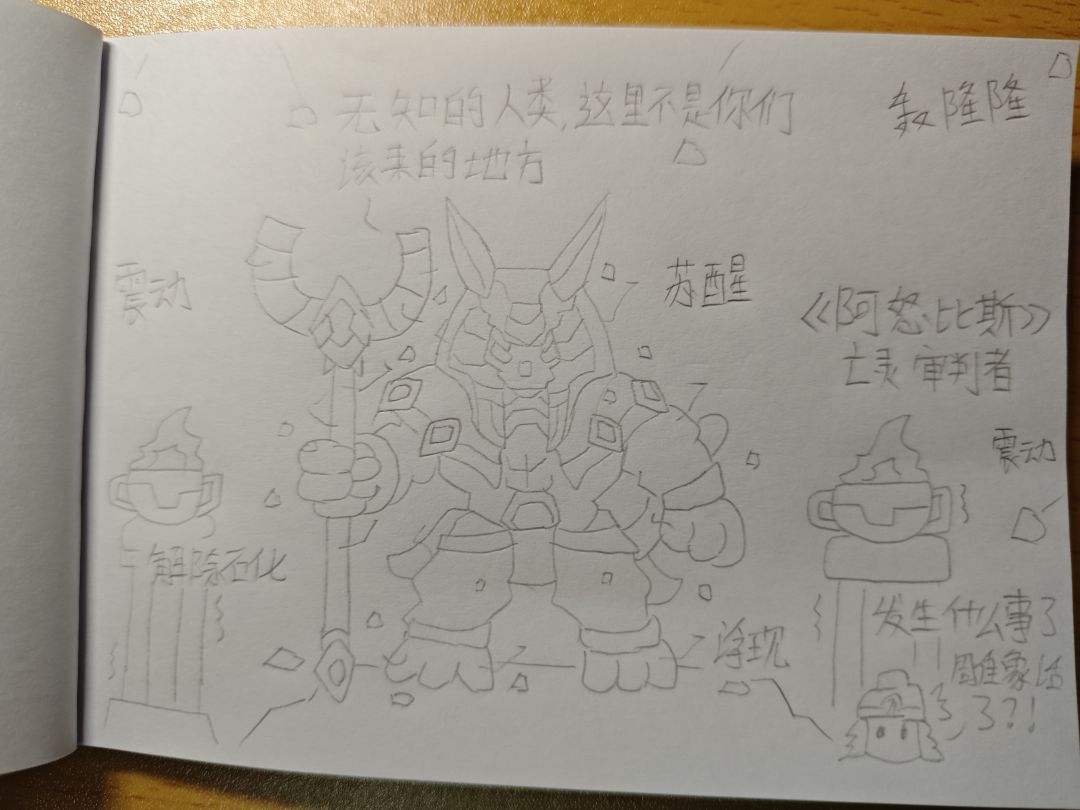 无知的人类,这里不是你们
该来的地方
轰隆隆
震动
苏醒
《阿怒比斯》
亡灵审判者
震动
解除石化
浮现
发生什么事了
雕象活
了?!